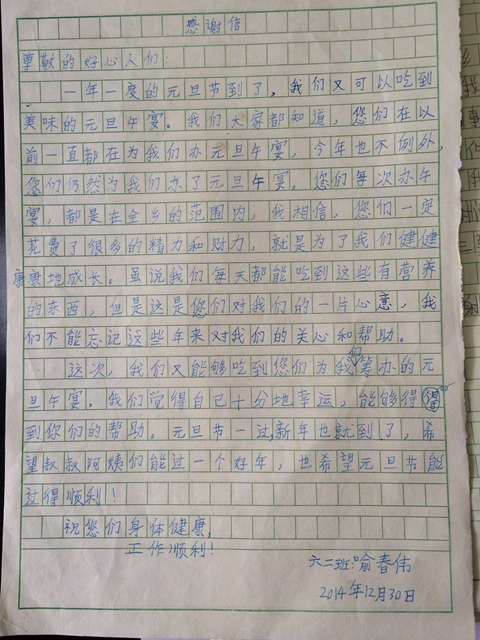 感谢信
尊敬的好心人们：
一年一度的元旦节到了，我们又可以吃到
美味的元旦午宴。我们大家都知道，您们在以
前一直都在为我们办元旦午宴，今年也不例外，
您们仍然为我们办了元旦午宴。您们每次办午
宴，都是在全乡的范围内，我相信，您们一定
花费了很多的精力和财力，就是为了我们健健
康康地成长。虽说我们每天都能吃到这些有营养
的东西，但是这是您们对我们的一片心意，我
们不能忘记这些年来对我们的关心和帮助。
这次，我们又能够吃到您们为我们筹办的元
旦午宴。我们觉得自己十分地幸运，能够得
到你们的帮助。元旦节一过，新年也就到了，希
望叔叔阿姨们能过一个好年，也希望元旦节能
过得顺利！
祝您们身体健康，
工作顺利！
六二班：喻春伟
2014年12月30日